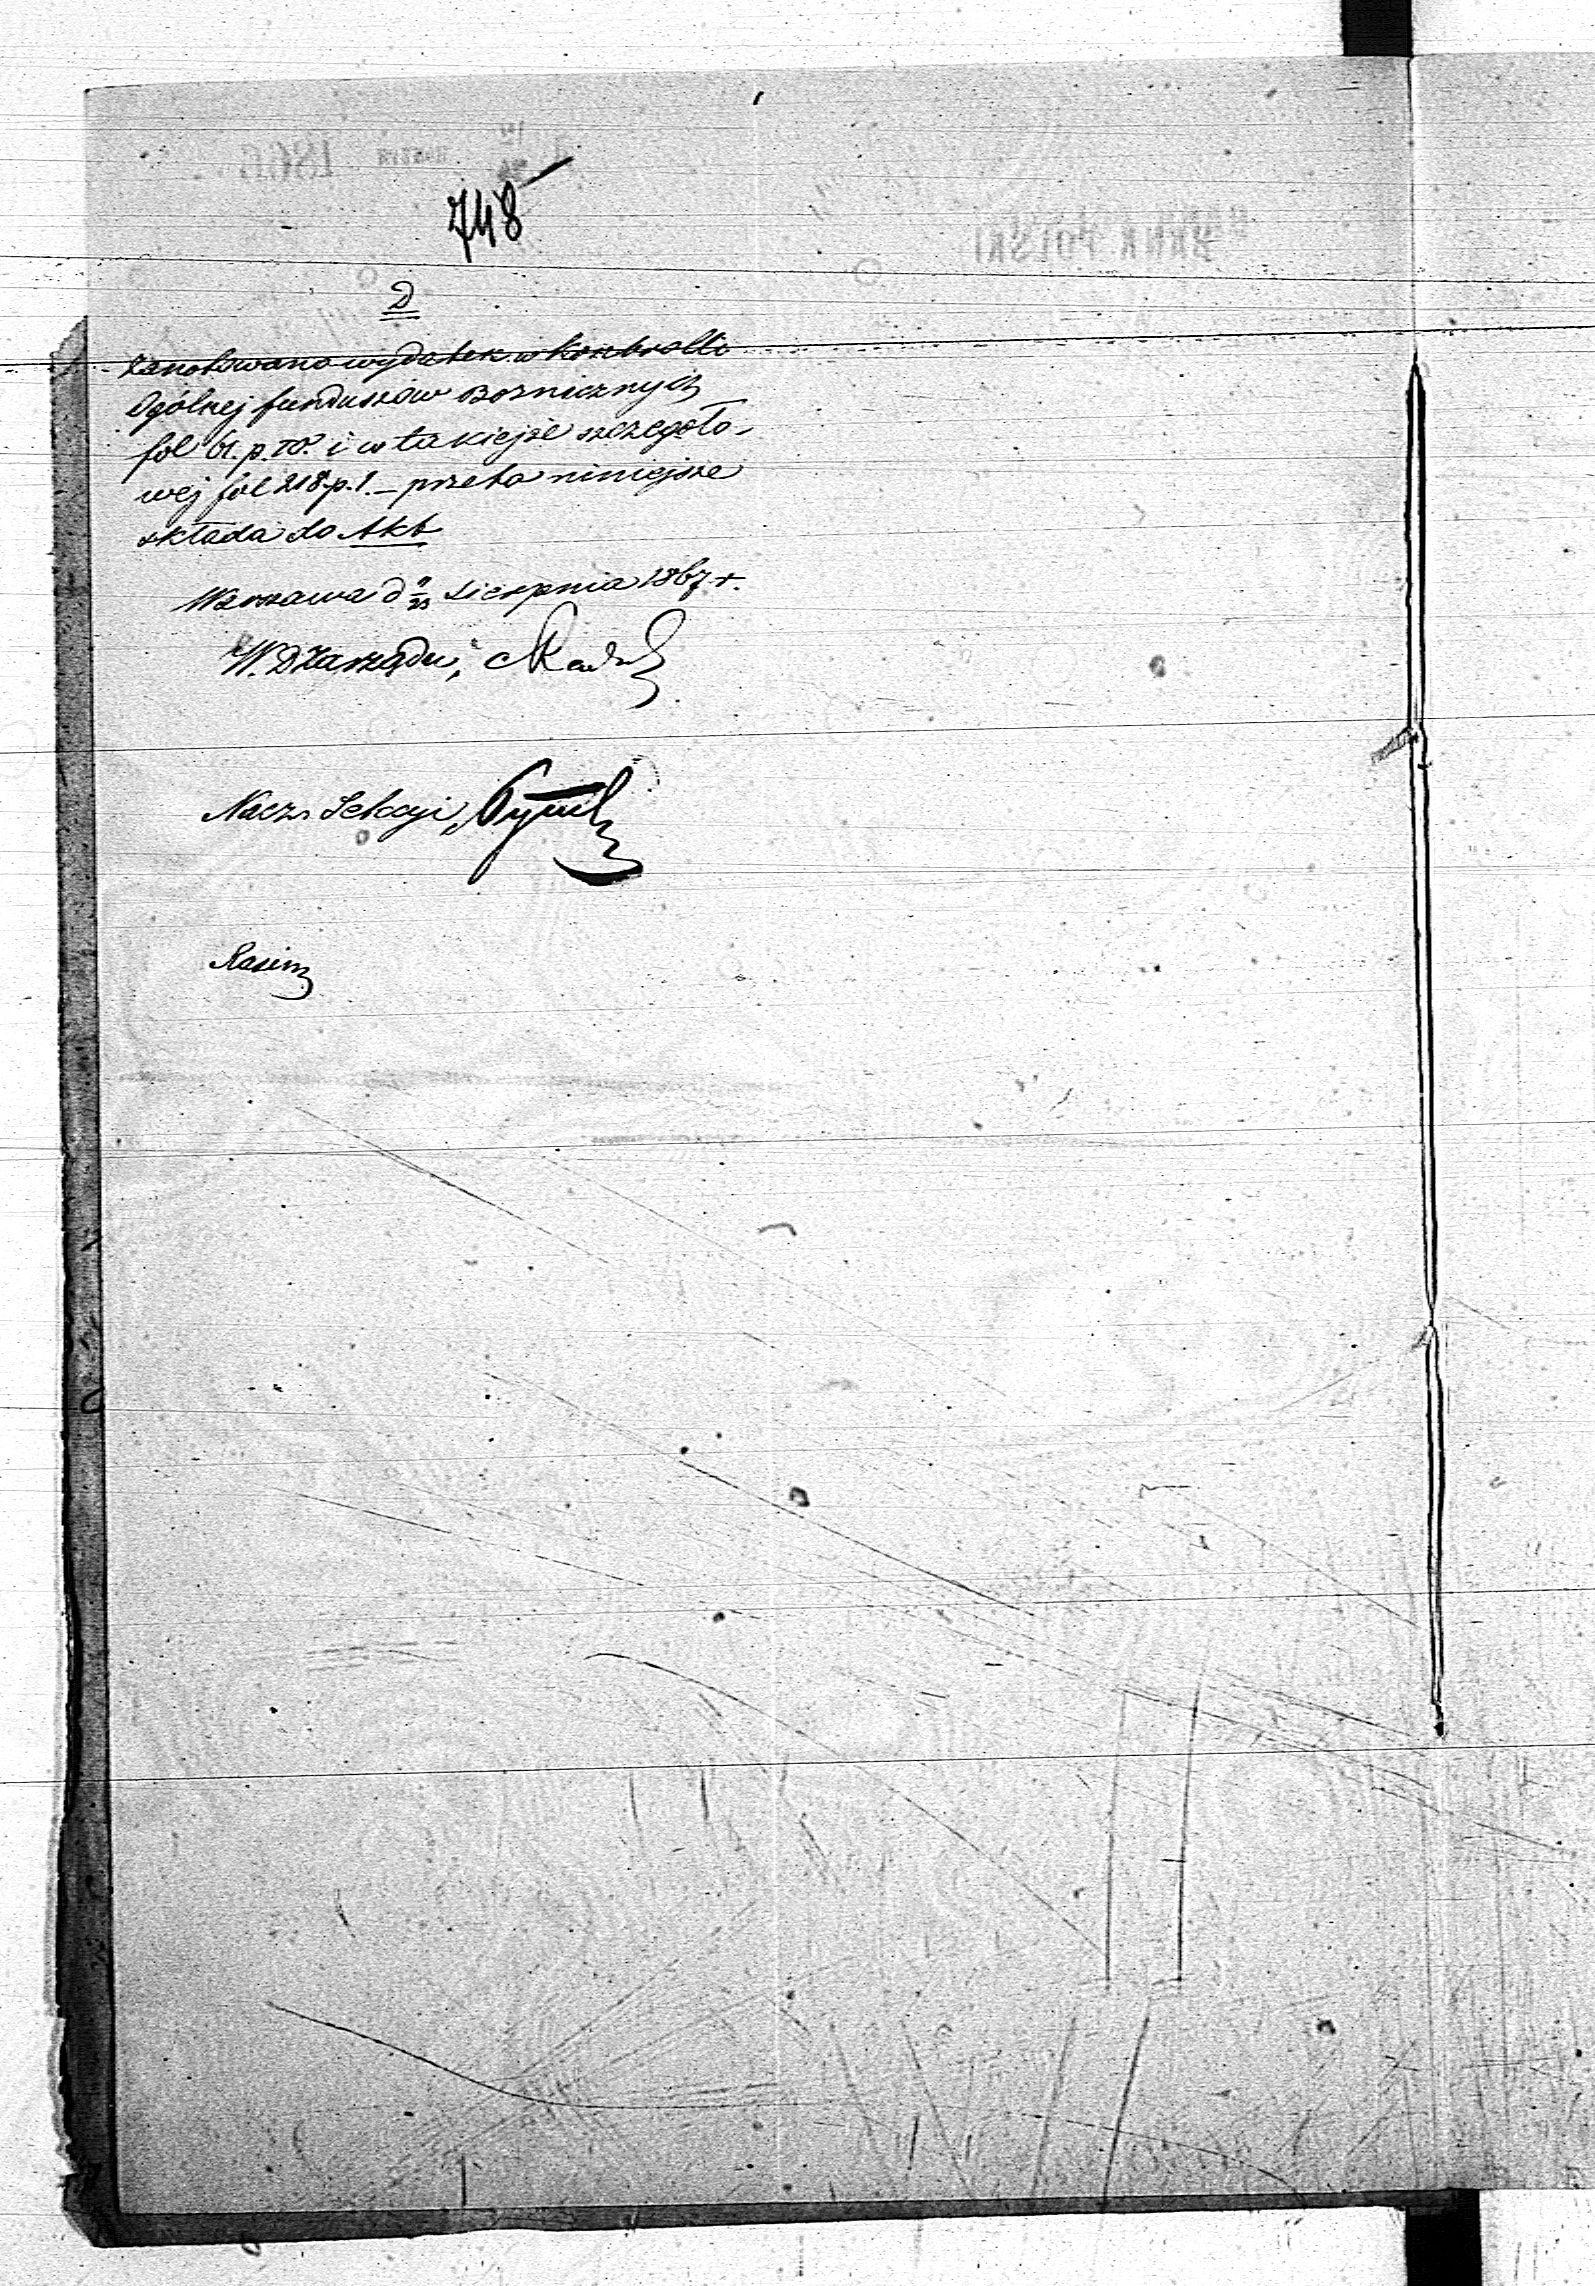 748
D
Zanotowano wydatek w Kontrolli
Ogólnej funduszów Boznicznych
fol 61. p. 10. i w takiejże szczegóło-
wej fol 218 p. 1. – przeto niniejsze
składa do Akt
Warszawa d 11/23 Sierpnia 1867 r.
W. D Zarządu,
Nacz. Sekcyi,
BANK POLSKI
1866